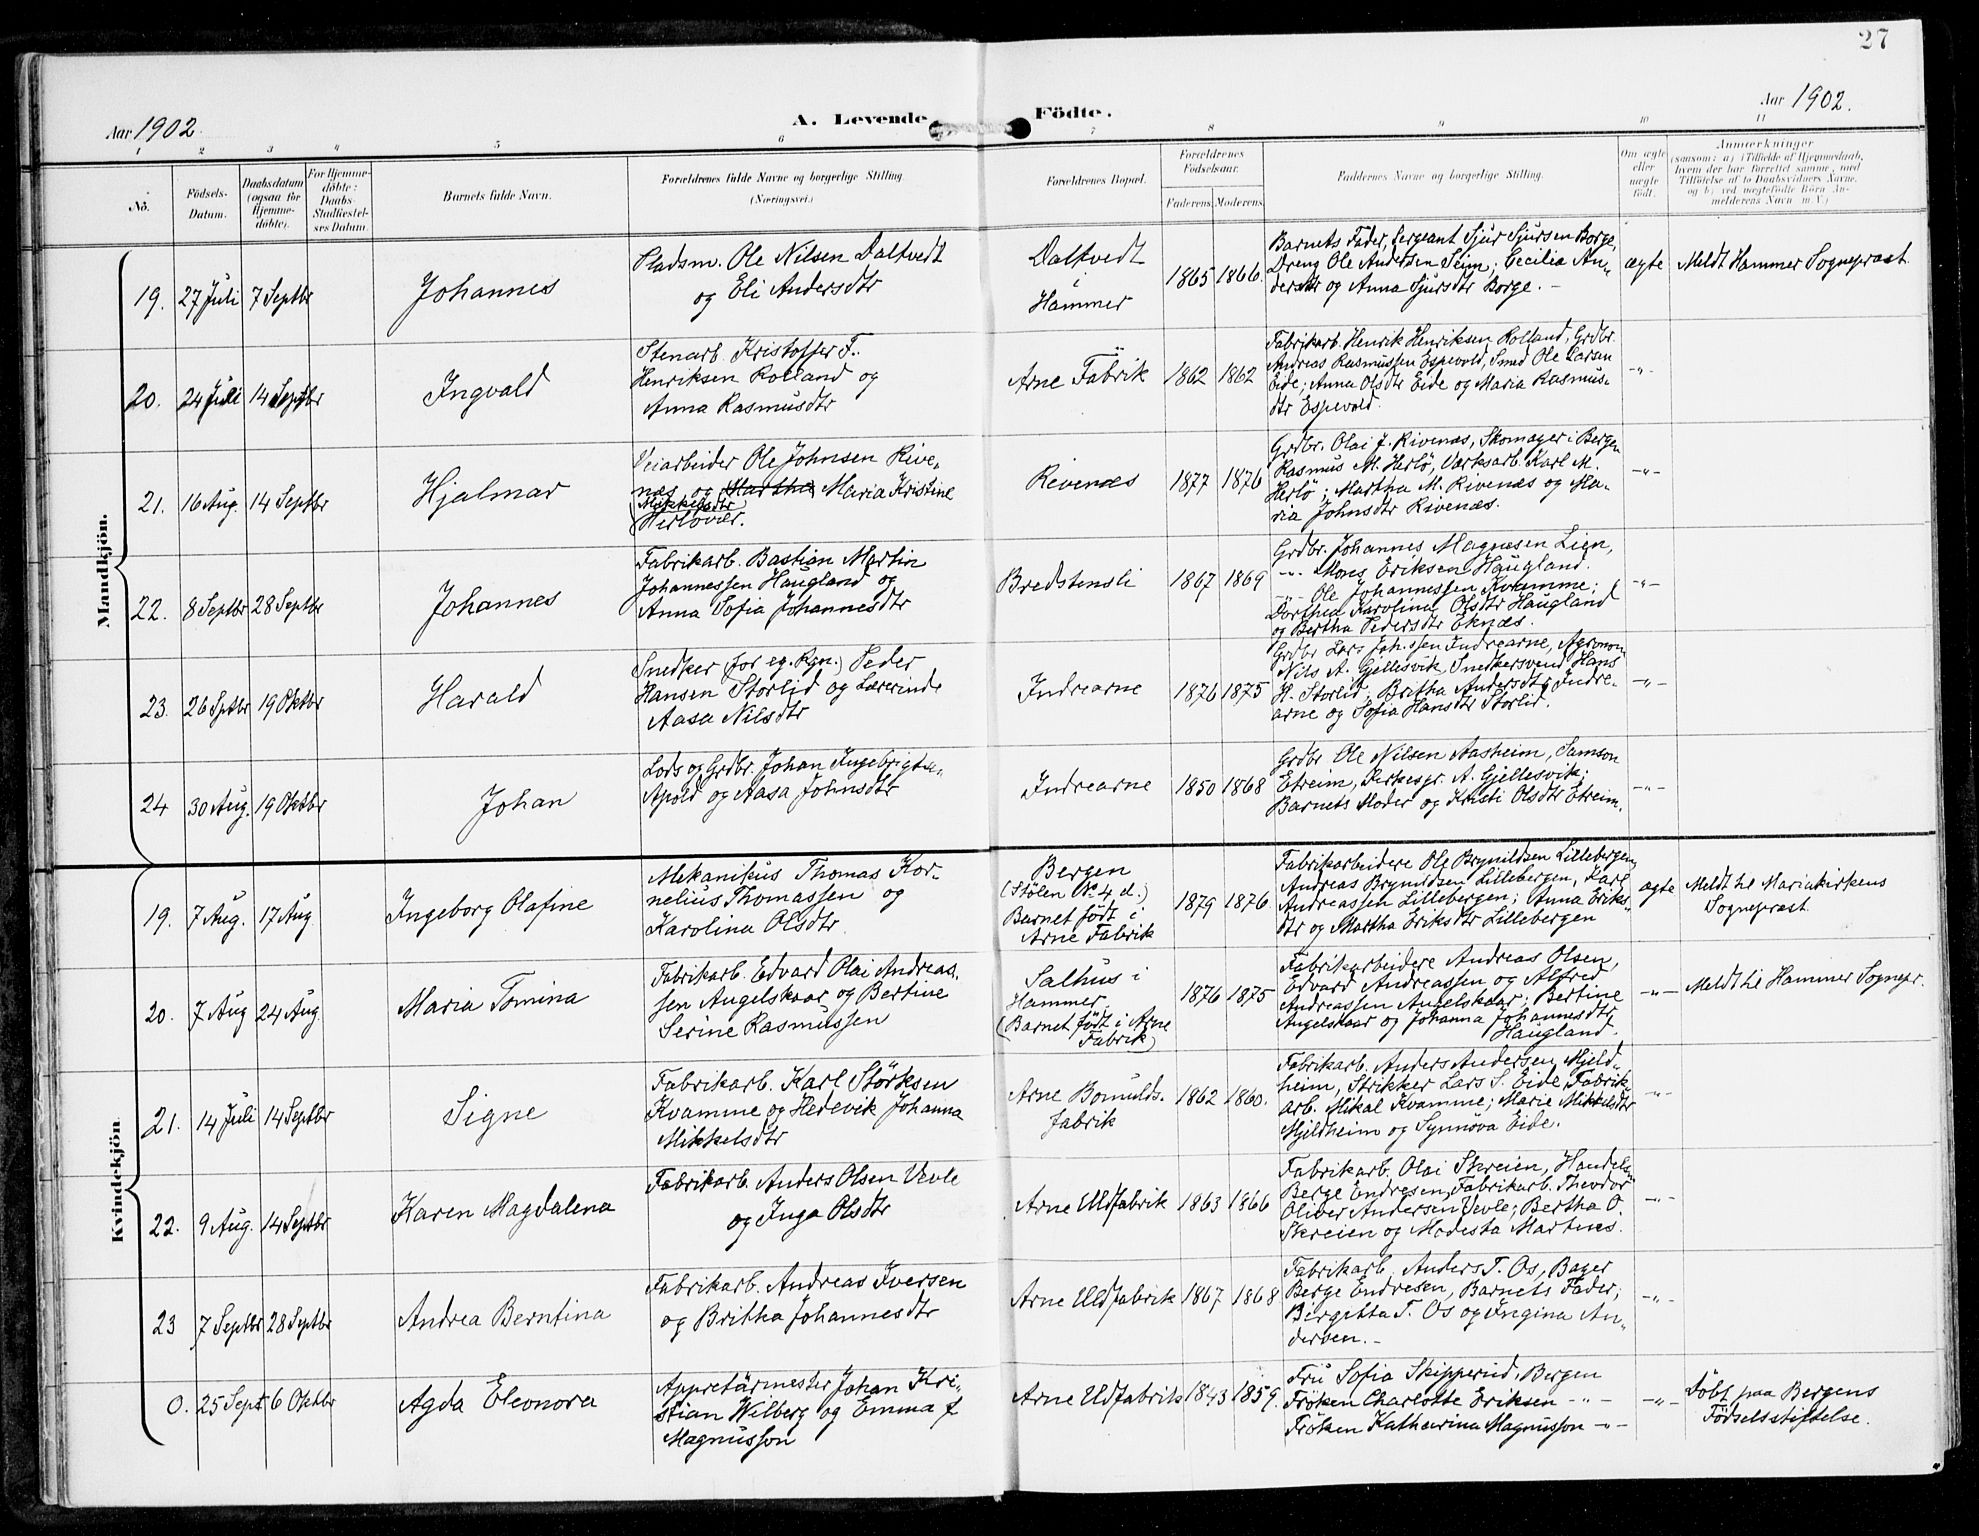 27
Aar 1902.
A. Levende Födte.
Aar 1902.
1 2 3 4 5 6 7 8 9 10 11
No.
Födsels-
Datum.
Daabsdatum
(ogsaa for
Hjemme-
döbte).
For Hjemme-
döbte:
Daabs-
Stadfæstel-
ses Datum.
Barnets fulde Navn.
Forældrenes fulde Navne og borgerlige Stilling
(Næringsvei.)
Forældrenes Bopæl.
Forældrenes
Födselsaar.
Faderens. Moderens.
Faddernes Navne og borgerlig Stilling.
Om ægte
eller
uægte
födt.
Anmærkninger
(saasom: a) i Tilfælde af Hjemmedaab,
hvem der har forrettet samme, med
Tilföielse af to Daabsvidners Navne,
og b) ved uægtefödte Börn An-
melderens Navn m. V.)
Mandkjön.
19. 27 Juli 7 Septbr
Johannes
Pladsm. Ole Nilsen Daltvedt
og Eli Andersdtr
Daltvedt
i
Hammer
1865 1866.
Barnets Fader, Sergeant Sjur Sjursen Borge,
Dreng Ole Andersen Seim; Cecilia An-
dersdtr og Anna Sjursdtr Borge. -
ægte
Meldt Hammer Sognepræst
20. 24 Juli 14 Septbr
Ingvald
Stenarb. Kristoffer F.
Henriksen Rolland og
Anna Rasmusdtr
Arne Fabrik
1862 1862
Fabrikarb. Henrik Henriksen Rolland, Grdbr.
Andreas Rasmussen Espevold, Smed Ole Larsen
Eide; Anna Olsdtr Eide og Maria Rasmus-
dtr Espevold.
-"-
21. 16 Aug. 14 Septbr
Hjalmar
Veiarbeider Ole Johnsen Rive-
næs og Martha Maria Kristine
Mikkelsdtr
Herlövær.
Rivenæs
1877 1876
Grdbr. Olai J. Rivenæs, Skomager i Bergen
Rasmus M. Herlö, Værksarb. Karl M.
Herlö; Martha M. Rivenæs og Ma-
ria Johnsdtr Rivenæs.
-"-
22. 8 Septbr 28 Septbr
Johannes
Fabrikarb. Bastian Martin
Johannessen Haugland og
Anna Sofia Johannesdtr
Bredstensli
1867 1869
Grdbr. Johannes Magnesen Lien,
-"- Mons Eriksen Haugland.
-"- Ole Johannessen Kvamme;
Dorthea Karolina Olsdtr Haugland
og Bertha Pedersdtr Eknæs.
-"-
23. 26 Sptbr 19 Oktbr
Harald
Snedker (for eg. Rgn.) Peder
Hansen Storlid og Lærerinde
Aasa Nilsdtr
Indrearne
1876 1875
Grdbr Lars Joh.ssen Indrearne, Agronom
Nils A. Gjellesvik, Snedkersvend Hans
H. Storlid; Britha Andersdtr Indre-
arne og Sofia Hansdtr Storlid.
-"-
24 30 Aug. 19 Oktbr
Johan
Lods og Grdbr. Johan Ingebrigts.
Apold og Aasa Johnsdtr
Indrearne
1850 1868
Grdbr Ole Nilsen Aasheim, Samson
Etreim, Kirkesgr. A. Gjellesvik;
Barnets Moder og Kristi Olsdtr Etreim.
-"-
Kvindekjön.
19. 7 Aug. 17 Aug
Ingeborg Olafine
Mekanikus Thomas Kor-
nelius Thomassen og
Karolina Olsdtr
Bergen
(Stölen No 4 d.)
Barnet födt i
Arne Fabrik
1879 1876.
Fabrikarbeidere Ole Brynildsen Lillebergen,
Andreas Brynildsen Lillebergen, Karl
Andreassen Lillebergen; Anna Eriks-
dtr og Martha Eriksdtr Lillebergen
ægte
Meldt til Mariakirkens
Sognepræst.
20. 7 Aug 24 Aug.
Maria Tomina
Fabrikarb. Edvard Olai Andreas-
sen Angelskaar og Bertine
Serine Rasmussen
Salhus i
Hammer.
(Barnet födt i Arne
Fabrik)
1876 1875
Fabrikarbeidere Andreas Olsen,
Edvard Andreassen og Alfred
Andreassen Angelskaar; Bertine
Angelskaar og Johanna Johannesdtr
Haugland.
-"-
Meldt til Hammer Sognepr.
21. 14 Juli 14 Septbr
Signe
Fabrikarb. Karl Störksen
Kvamme og Hedevik Johanna
Mikkelsdtr
Arne Bomulds-
fabrik
1862 1860.
Fabrikarb. Anders Andersen Mjeld-
heim, Strikker Lars S. Eide, Fabrik-
arb. Mikal Kvamme; Marie Mikkelsdtr
Mjeldheim og Synnöva Eide.
-"-
22. 9 Aug. 14 Septbr
Karen Magdalena
Fabrikarb. Anders Olsen Vevle
og Inga Olsdtr
Arne Uldfabrik
1863 1866
Fabrikarb. Olai Skreien, Handelsm
Berge Endresen, Fabrikarb. Theodor
Oliver Andersen Vevle; Bertha O.
Skreien og Modesta Martnes.
-"-
23 7 Septbr 28 Septbr
Andrea Berntina
Fabrikarb. Andreas Iversen
og Britha Johannesdtr
Arne Uldfabrik
1867 1868
Fabrikarb. Anders T. Os, Bager
Berge Endresen, Barnets Fader;
Birgitta T. Os og Ingina An-
dersen. -
-"-
0. 25 Sept 6 Oktbr
Agda Eleonora
Appretürmester Johan Kri-
stian Wilberg og Emma f.
Magnusson
Arne Uldfabrik
1843 1859.
Fru Sofia Skipperud, Bergen
Fröken Charlotte Eriksen -"-
Fröken Katharina Magnusson -"-
-"-
Döbt paa Bergens
Födselsstiftelse.